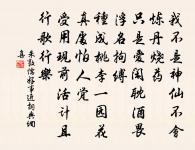 我不是神仙不會
煉丹燒藥
只是愛閒耽酒畏
浮名拘縛
種成桃李一園花
真處怕人覺
受用現前活計且
行歌行樂
朱敦儒好事近詞